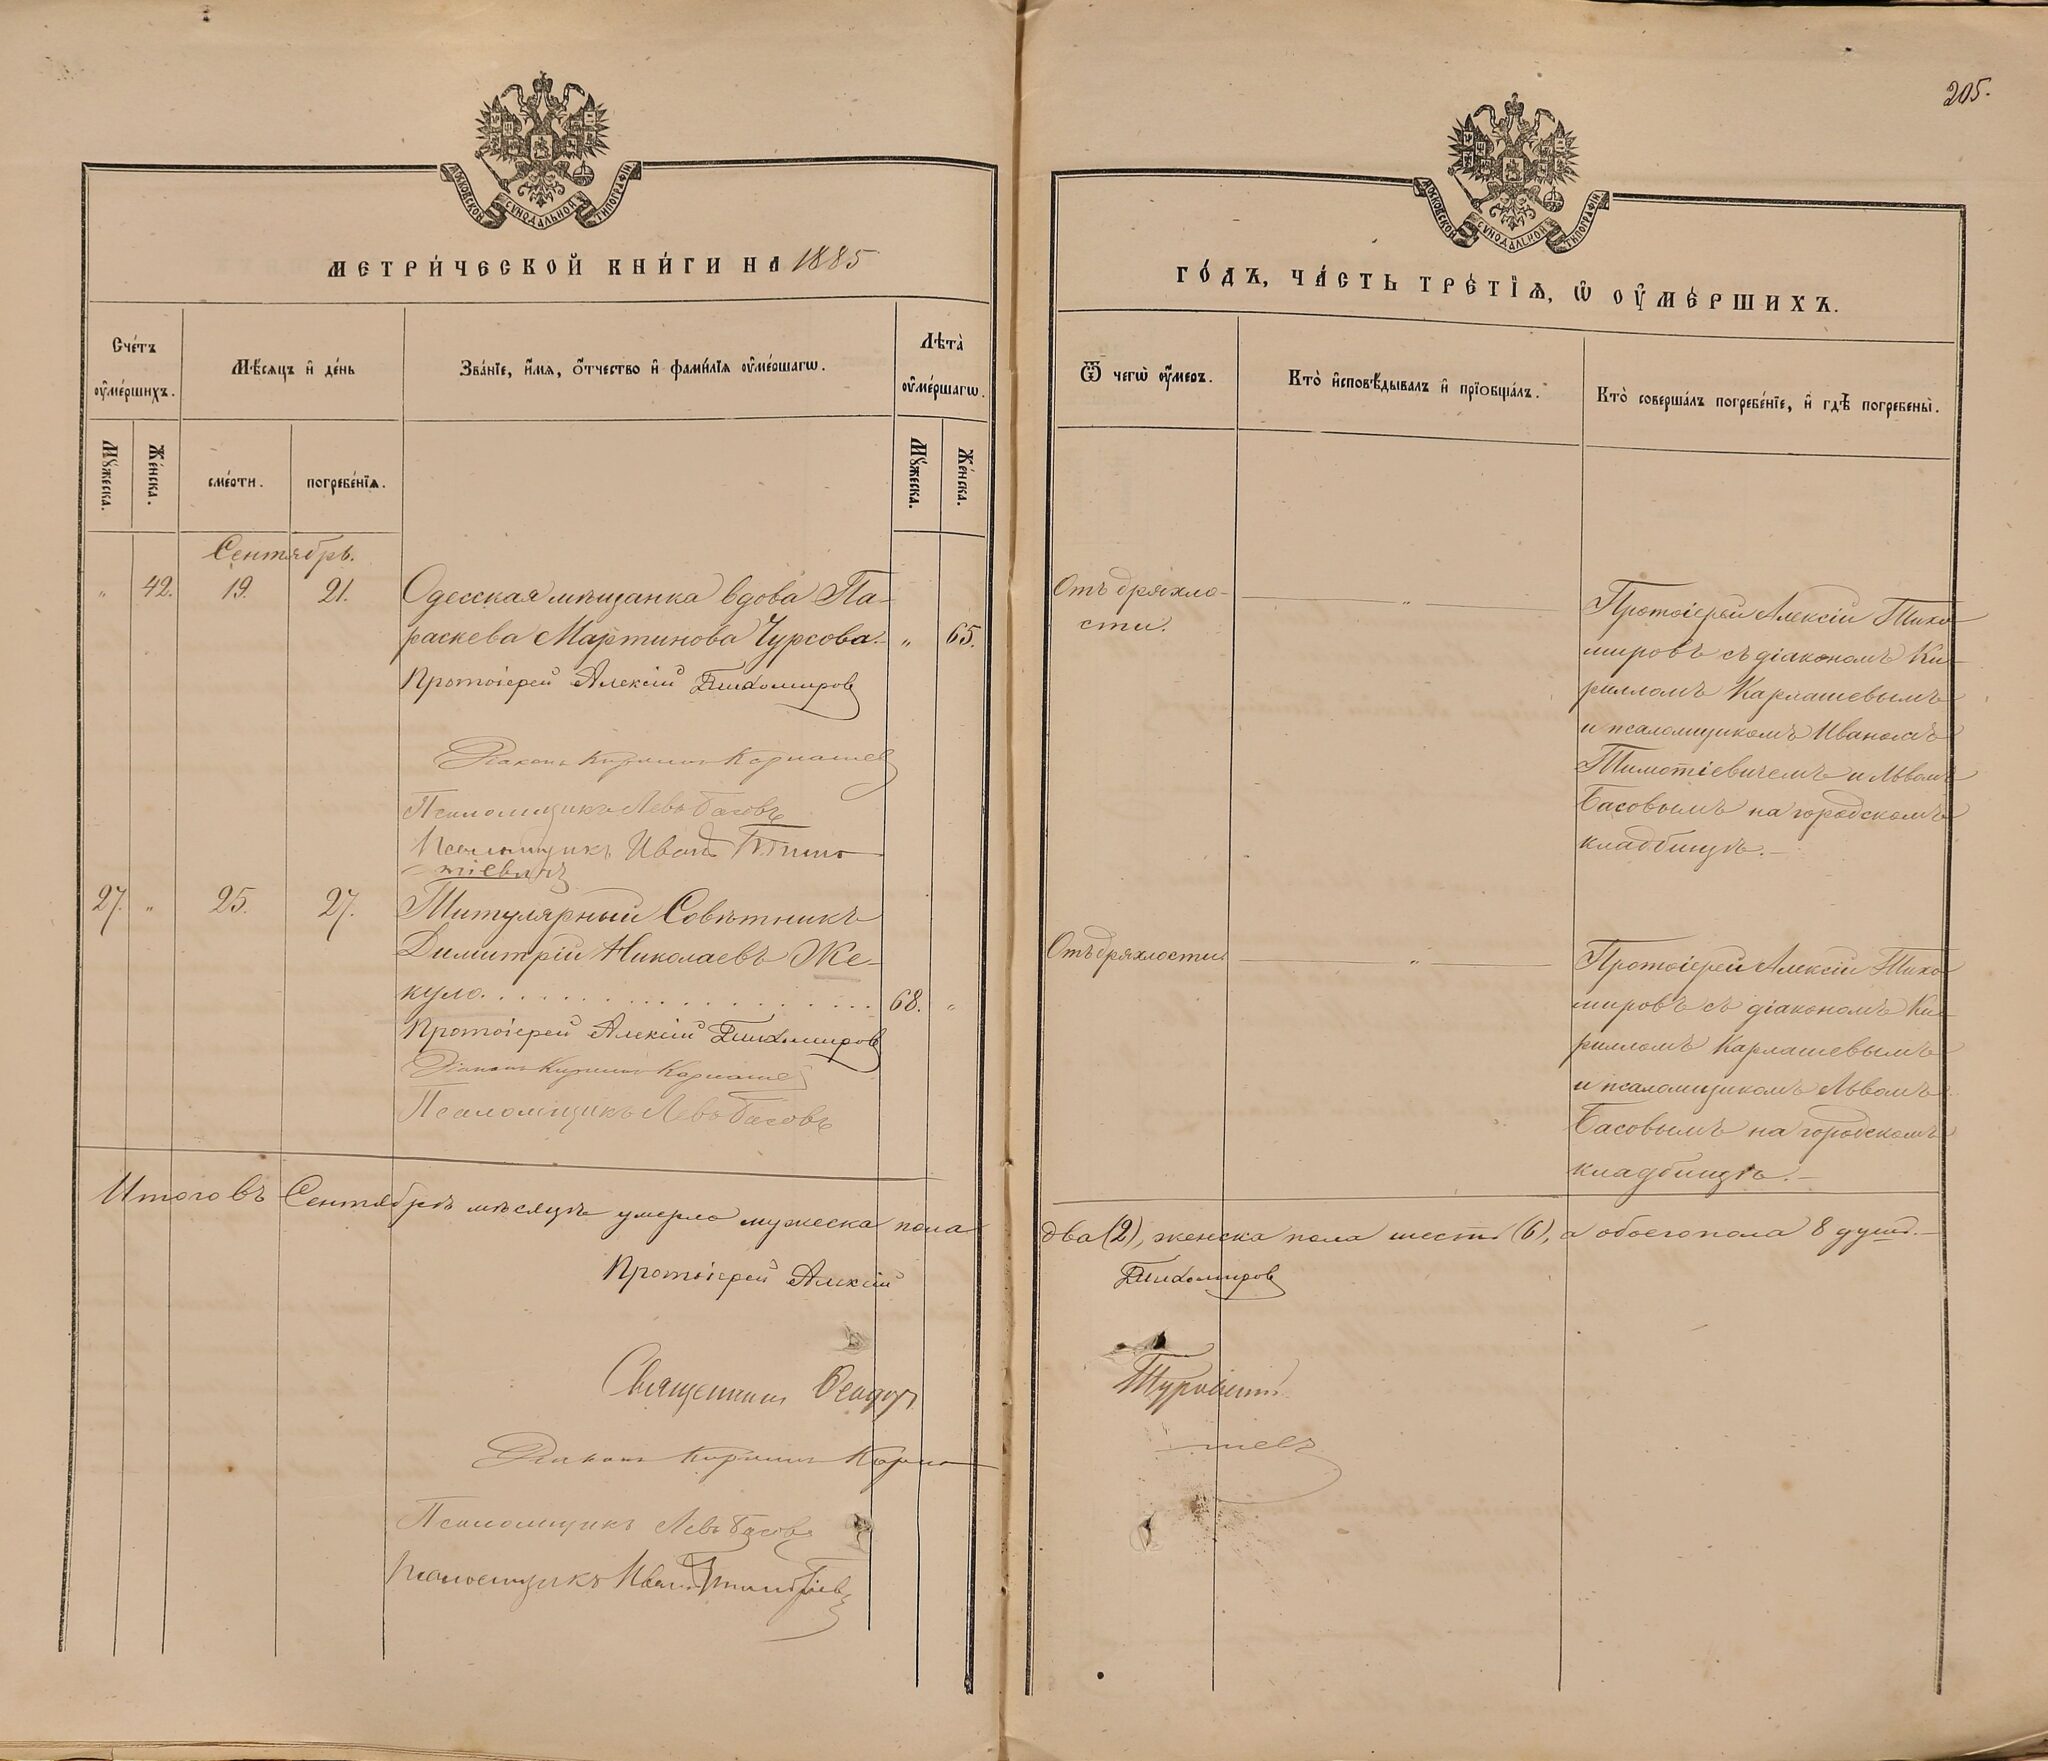 205.
МОСКОВСКОЙ СѴНОДАЛЬНОЙ ТИПОГРАФІИ
МОСКОВСКОЙ СѴНОДАЛЬНОЙ ТИПОГРАФІИ
МЕТРИ́ЧЕСКОЙ КНИ́ГИ НА 1885
ГО́ДЪ, ЧА́СТЬ ТРЕ́ТІѦ, Ѡ҆ ОУ҆МЕ́РШИХЪ.
Сче́тъ оу҆ме́ршихъ.
Мѣ́сяцъ и҆ де́нь
Зва́нїе, и҆́мѧ, ѻ҆́тчество и҆ фами́лїѧ оу҆ме́ршагѡ.
Лѣ́та оу҆ме́ршагѡ.
Ѿ чегѡ̀ оу҆́меръ.
Кто̀ и҆сповѣ́дывалъ и҆ прїобща́лъ.
Кто̀ соверша́лъ погребе́нїе, и҆ гдѣ̀ погребены̀.
Мꙋ́жеска.
Же́нска.
сме́рти.
погребе́нїѧ.
Мꙋ́жеска.
Же́нска.
Сентябрь.
" 42. 19. 21. Одесская мѣщанка вдова Па-
раскева Мартинова Чурсова. " 65.
Протоіерей Алексій Тихомировъ
Діаконъ Кириллъ Карпашевъ
Псаломщикъ Левъ Басовъ
Псаломщикъ Иванъ Тимо-
тіевичъ
Отъ дряхло-
сти.
"
Протоіерей Алексій Тихо-
мировъ съ діакономъ Ки-
рилломъ Карпашевымъ
и псаломщикомъ Иваномъ
Тимотіевичемъ и Львомъ
Басовымъ на городскомъ
кладбищѣ.
27. " 25. 27. Титулярный Совѣтникъ
Димитрій Николаевъ Же-
куло. 68. "
Протоіерей Алексій Тихомировъ
Діаконъ Кириллъ Карпашевъ
Псаломщикъ Левъ Басовъ
Отъ дряхлости.
"
Протоіерей Алексій Тихо-
мировъ съ діакономъ Ки-
рилломъ Карпашевымъ
и псаломщикомъ Львомъ
Басовымъ на городскомъ
кладбищѣ.
Итого въ Сентябрѣ мѣсяцѣ умерло мужеска пола два (2), женска пола шесть (6), а обоего пола 8 душъ.
Протоіерей Алексій Тихомировъ
Священникъ Феодоръ
Діаконъ Кириллъ Карпа-
шевъ
Псаломщикъ Левъ Басовъ
Псаломщикъ Иванъ Тимотіевичъ